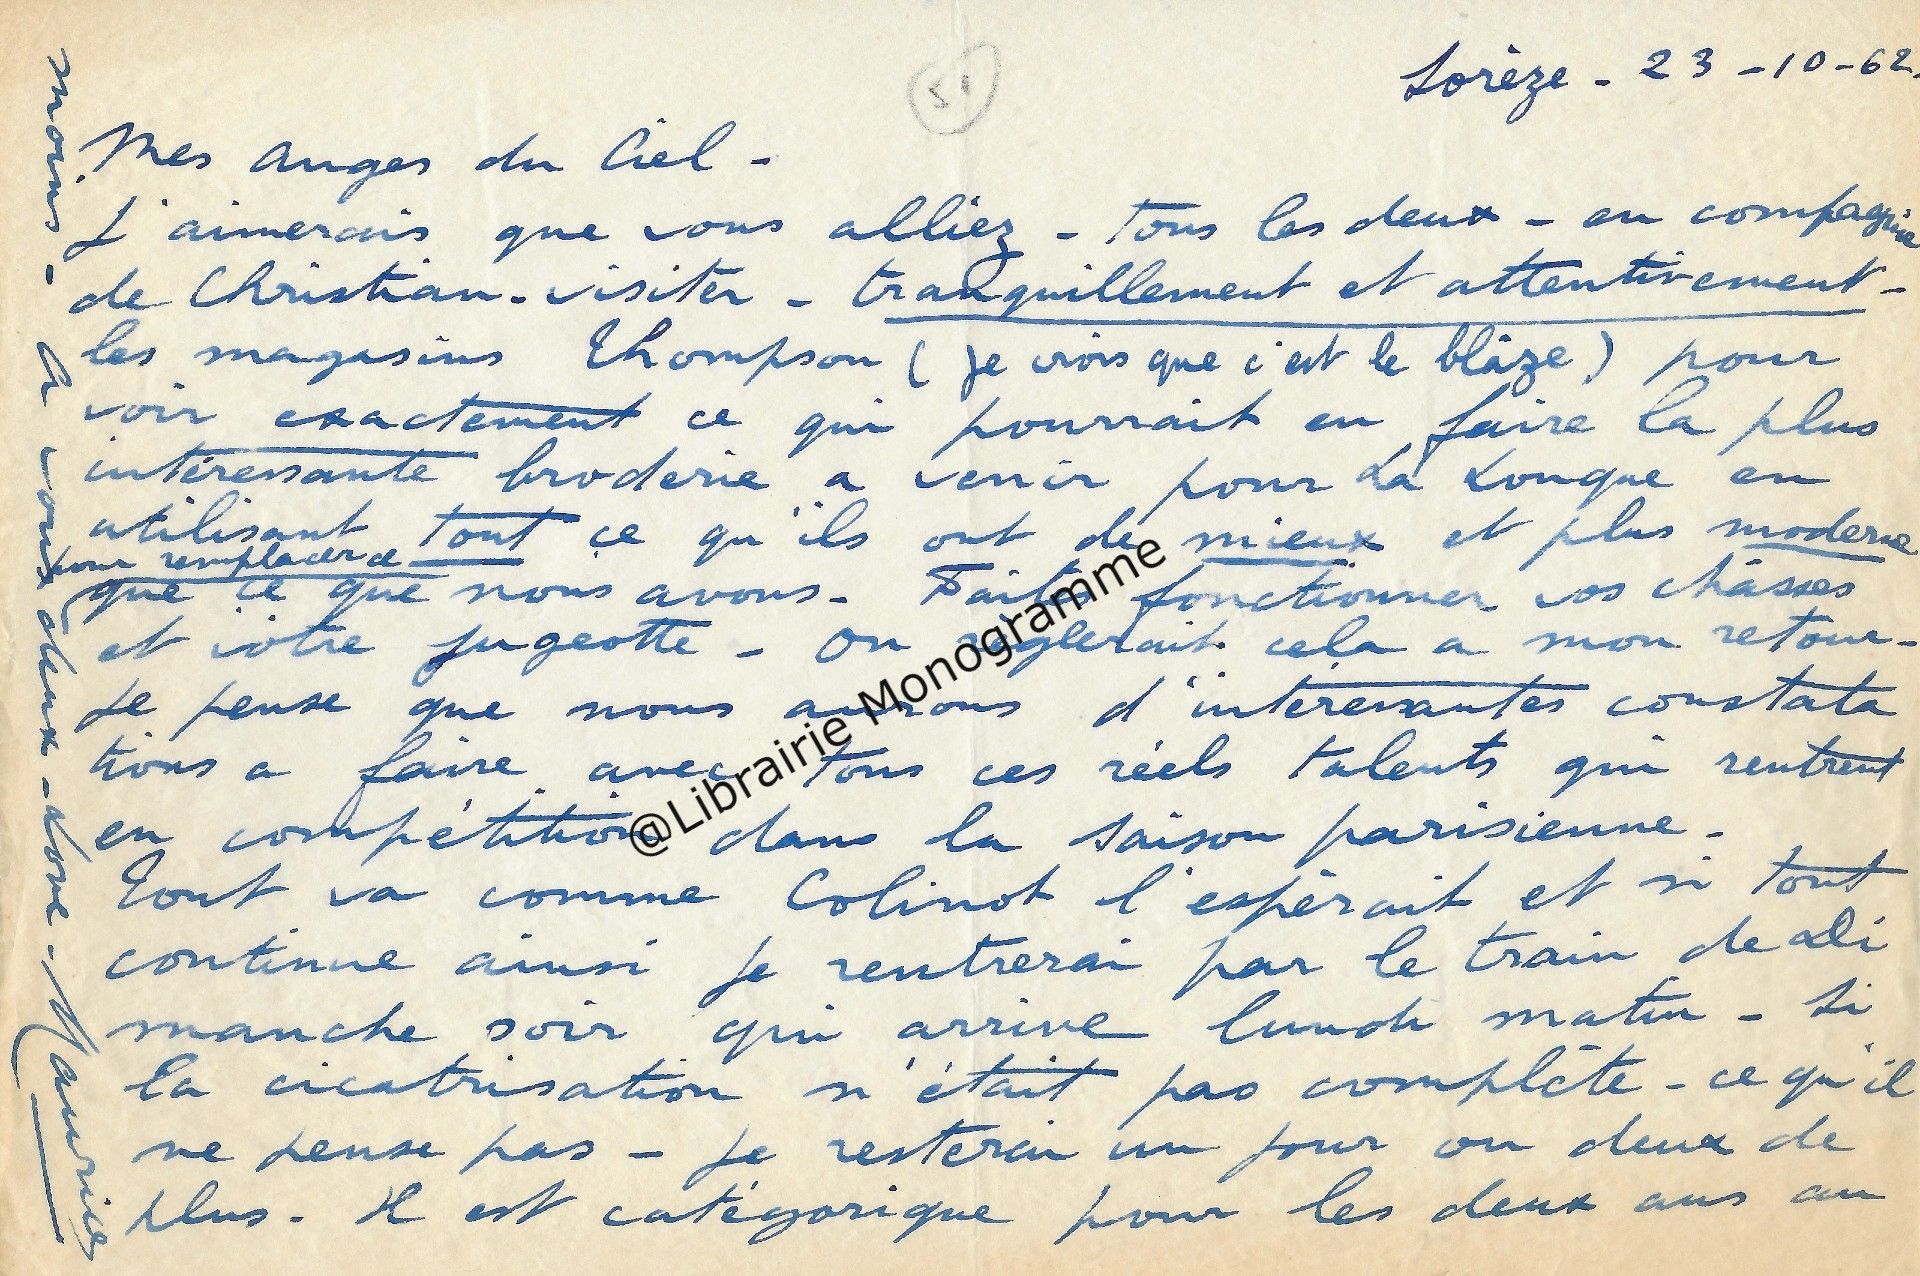 51
Sorèze - 23 - 10 - 62.
Mes Anges du Ciel -
J'aimerais que vous alliez - tous les deux - en compagnie
de Christian - visiter - tranquillement et attentivement -
les magasins Thompson (je crois que c'est le blâze) pour
voir exactement ce qui pourrait en faire la plus
intéressante broderie a venir pour La Louque en
utilisant tout ce qu'ils ont de mieux et plus moderne
pour remplacer ce
que ce que nous avons - Faites fonctionner vos châsses
et votre jugeotte - On règlerait cela a mon retour -
Je pense que nous aurons d'intéressantes constata
tions a faire avec tous ces réels talents qui rentrent
en compétition dans la saison parisienne -
Tout va comme Colinot l'espérait et si tout
continue ainsi je rentrerai par le train de Di
manche soir qui arrive lundi matin - Si
la cicatrisation n'était pas complète - ce qu'il
ne pense pas - je resterai un jour ou deux de
plus - Il est catégorique pour les deux ans au
moins - A vous deux - Love - Maurice
@Librairie Monogramme